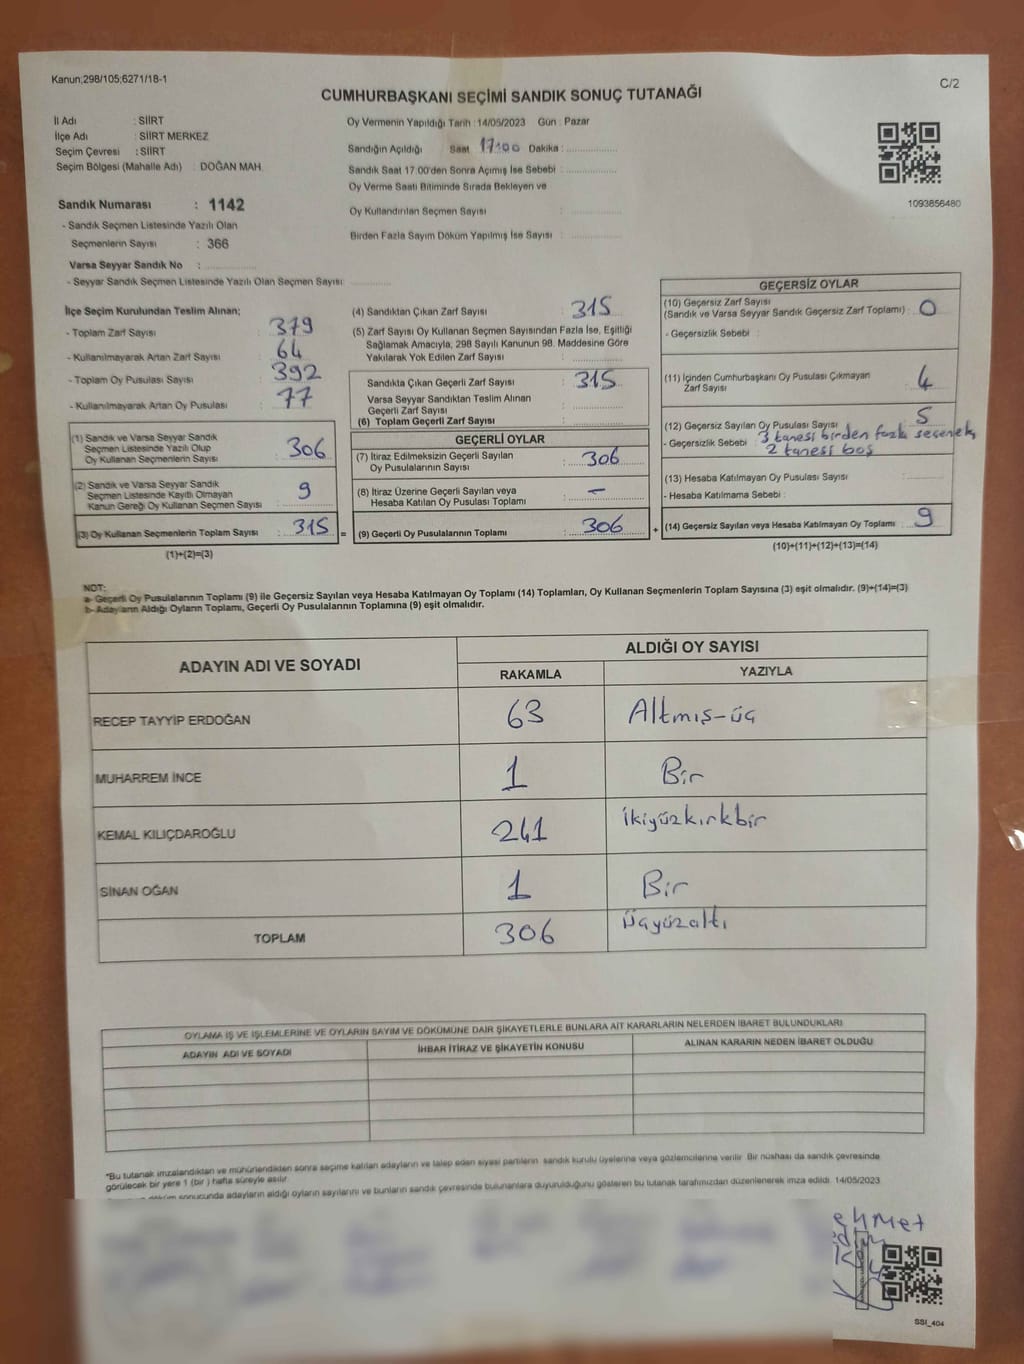 Kanun;298/105,6271/18-1
C/2
CUMHURBAŞKANI SEÇİMİ SANDIK SONUÇ TUTANAĞI
İl Adı : SİİRT
İlçe Adı : SİİRT MERKEZ
Seçim Çevresi : SİİRT
Seçim Bölgesi (Mahalle Adı) : DOĞAN MAH.
Sandık Numarası : 1142
- Sandık Seçmen Listesinde Yazılı Olan
Seçmenlerin Sayısı : 366
Varsa Seyyar Sandık No :
- Seyyar Sandık Seçmen Listesinde Yazılı Olan Seçmen Sayısı:
Oy Vermenin Yapıldığı Tarih : 14/05/2023 Gün : Pazar
Sandığın Açıldığı Saat 17:00 Dakika :
Sandık Saat 17.00'den Sonra Açımış İse Sebebi :
Oy Verme Saati Bitiminde Sırada Bekleyen ve
Oy Kullandırılan Seçmen Sayısı :
Birden Fazla Sayım Döküm Yapılmış İse Sayısı :
1093856480
İlçe Seçim Kurulundan Teslim Alınan;
- Toplam Zarf Sayısı : 379
- Kullanılmayarak Artan Zarf Sayısı : 64
- Toplam Oy Pusulası Sayısı : 392
- Kullanılmayarak Artan Oy Pusulası : 77
(1) Sandık ve Varsa Seyyar Sandık
Seçmen Listesinde Yazılı Olup
Oy Kullanan Seçmenlerin Sayısı : 306
(2) Sandık ve Varsa Seyyar Sandık
Seçmen Listesinde Kayıtlı Olmayan
Kanun Gereği Oy Kullanan Seçmen Sayısı : 9
(3) Oy Kullanan Seçmenlerin Toplam Sayısı : 315 =
(1)+(2)=(3)
(4) Sandıktan Çıkan Zarf Sayısı : 315
(5) Zarf Sayısı Oy Kullanan Seçmen Sayısından Fazla İse, Eşitliği
Sağlamak Amacıyla, 298 Sayılı Kanunun 98. Maddesine Göre
Yakılarak Yok Edilen Zarf Sayısı :
Sandıkta Çıkan Geçerli Zarf Sayısı : 315
Varsa Seyyar Sandıktan Teslim Alınan
Geçerli Zarf Sayısı :
(6) Toplam Geçerli Zarf Sayısı :
GEÇERLİ OYLAR
(7) İtiraz Edilmeksizin Geçerli Sayılan
Oy Pusulalarının Sayısı : 306
(8) İtiraz Üzerine Geçerli Sayılan veya
Hesaba Katılan Oy Pusulası Toplamı : -
(9) Geçerli Oy Pusulalarının Toplamı : 306 +
GEÇERSİZ OYLAR
(10) Geçersiz Zarf Sayısı
(Sandık ve Varsa Seyyar Sandık Geçersiz Zarf Toplamı) : 0
- Geçersizlik Sebebi :
(11) İçinden Cumhurbaşkanı Oy Pusulası Çıkmayan
Zarf Sayısı : 4
(12) Geçersiz Sayılan Oy Pusulası Sayısı : 5
- Geçersizlik Sebebi : 3 tanesi birden fazla seçenek,
2 tanesi boş
(13) Hesaba Katılmayan Oy Pusulası Sayısı :
- Hesaba Katılmama Sebebi :
(14) Geçersiz Sayılan veya Hesaba Katılmayan Oy Toplamı : 9
(10)+(11)+(12)+(13)=(14)
NOT:
a- Geçerli Oy Pusulalarının Toplamı (9) ile Geçersiz Sayılan veya Hesaba Katılmayan Oy Toplamı (14) Toplamları, Oy Kullanan Seçmenlerin Toplam Sayısına (3) eşit olmalıdır. (9)+(14)=(3)
b- Adayların Aldığı Oyların Toplamı, Geçerli Oy Pusulalarının Toplamına (9) eşit olmalıdır.
ADAYIN ADI VE SOYADI
ALDIĞI OY SAYISI
RAKAMLA YAZIYLA
RECEP TAYYİP ERDOĞAN 63 Altmış-üç
MUHARREM İNCE 1 Bir
KEMAL KILIÇDAROĞLU 241 ikiyüzkırkbir
SİNAN OĞAN 1 Bir
TOPLAM 306 üçyüzaltı
OYLAMA İŞ VE İŞLEMLERİNE VE OYLARIN SAYIM VE DÖKÜMÜNE DAİR ŞİKAYETLERLE BUNLARA AİT KARARLARIN NELERDEN İBARET BULUNDUKLARI
ADAYIN ADI VE SOYADI İHBAR İTİRAZ VE ŞİKAYETİN KONUSU ALINAN KARARIN NEDEN İBARET OLDUĞU
*Bu tutanak imzalandıktan ve mühürlendikten sonra seçime katılan adayların ve talep eden siyasi partilerin sandık kurulu üyelerine veya gözlemcilerine verilir. Bir nüshası da sandık çevresinde
görülecek bir yere 1 (bir) hafta süreyle asılır.
döküm sonucunda adayların aldığı oyların sayılarını ve bunların sandık çevresinde bulunanlara duyurulduğunu gösteren bu tutanak tarafımızdan düzenlenerek imza edildi. 14/05/2023
ehmet
SSI_404